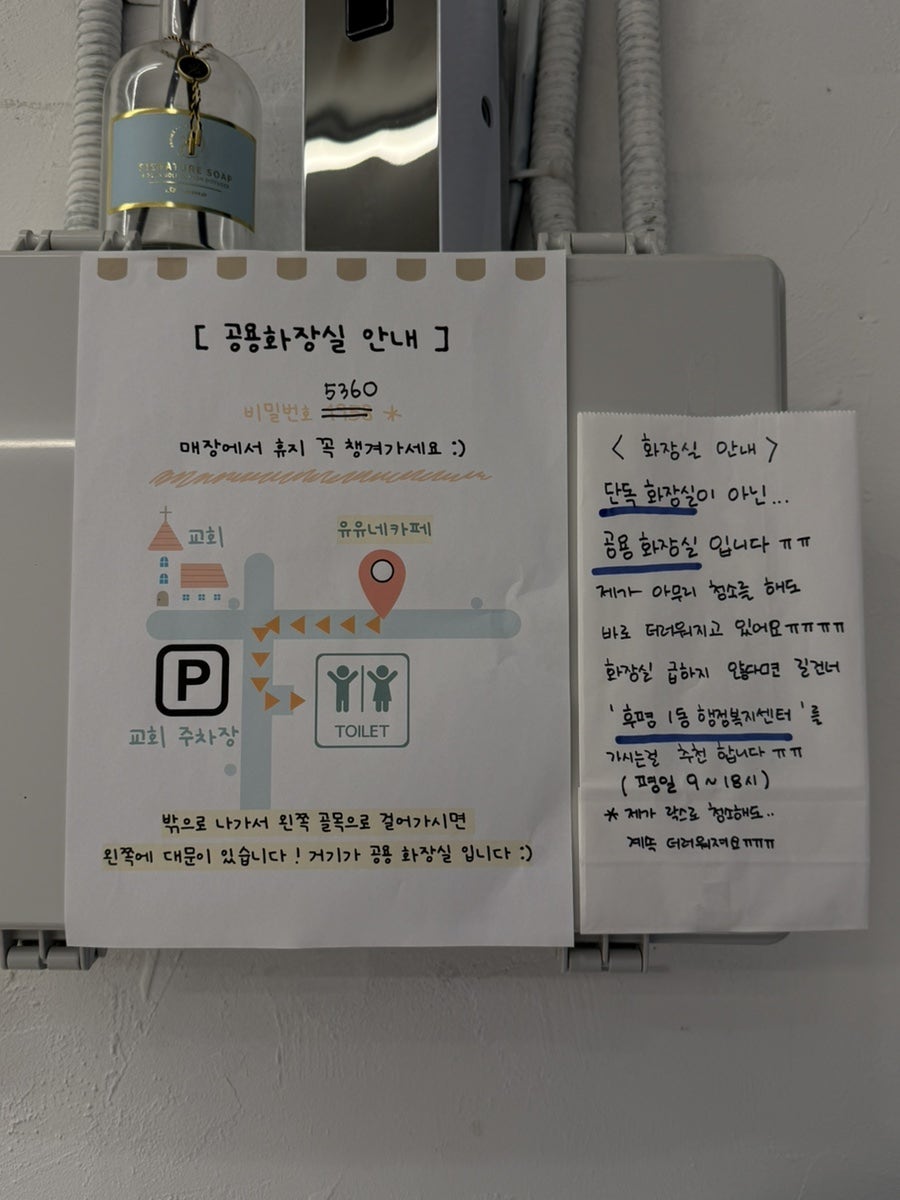 SIGNATURE SOAP
[ 공용화장실 안내 ]
5360
비밀번호 *
매장에서 휴지 꼭 챙겨가세요 :)
교회
유유네카페
P
교회 주차장
TOILET
밖으로 나가서 왼쪽 골목으로 걸어가시면
왼쪽에 대문이 있습니다 ! 거기가 공용 화장실 입니다 :)
< 화장실 안내 >
단독 화장실이 아닌...
공용 화장실 입니다 ㅠㅠ
제가 아무리 청소를 해도
바로 더러워지고 있어요ㅠㅠㅠㅠ
화장실 급하지 않다면 길건너
'후평 1동 행정복지센터'를
가시는걸 추천 합니다 ㅠㅠ
( 평일 9~18시 )
* 제가 락스로 청소해도..
계속 더러워져요ㅠㅠㅠ